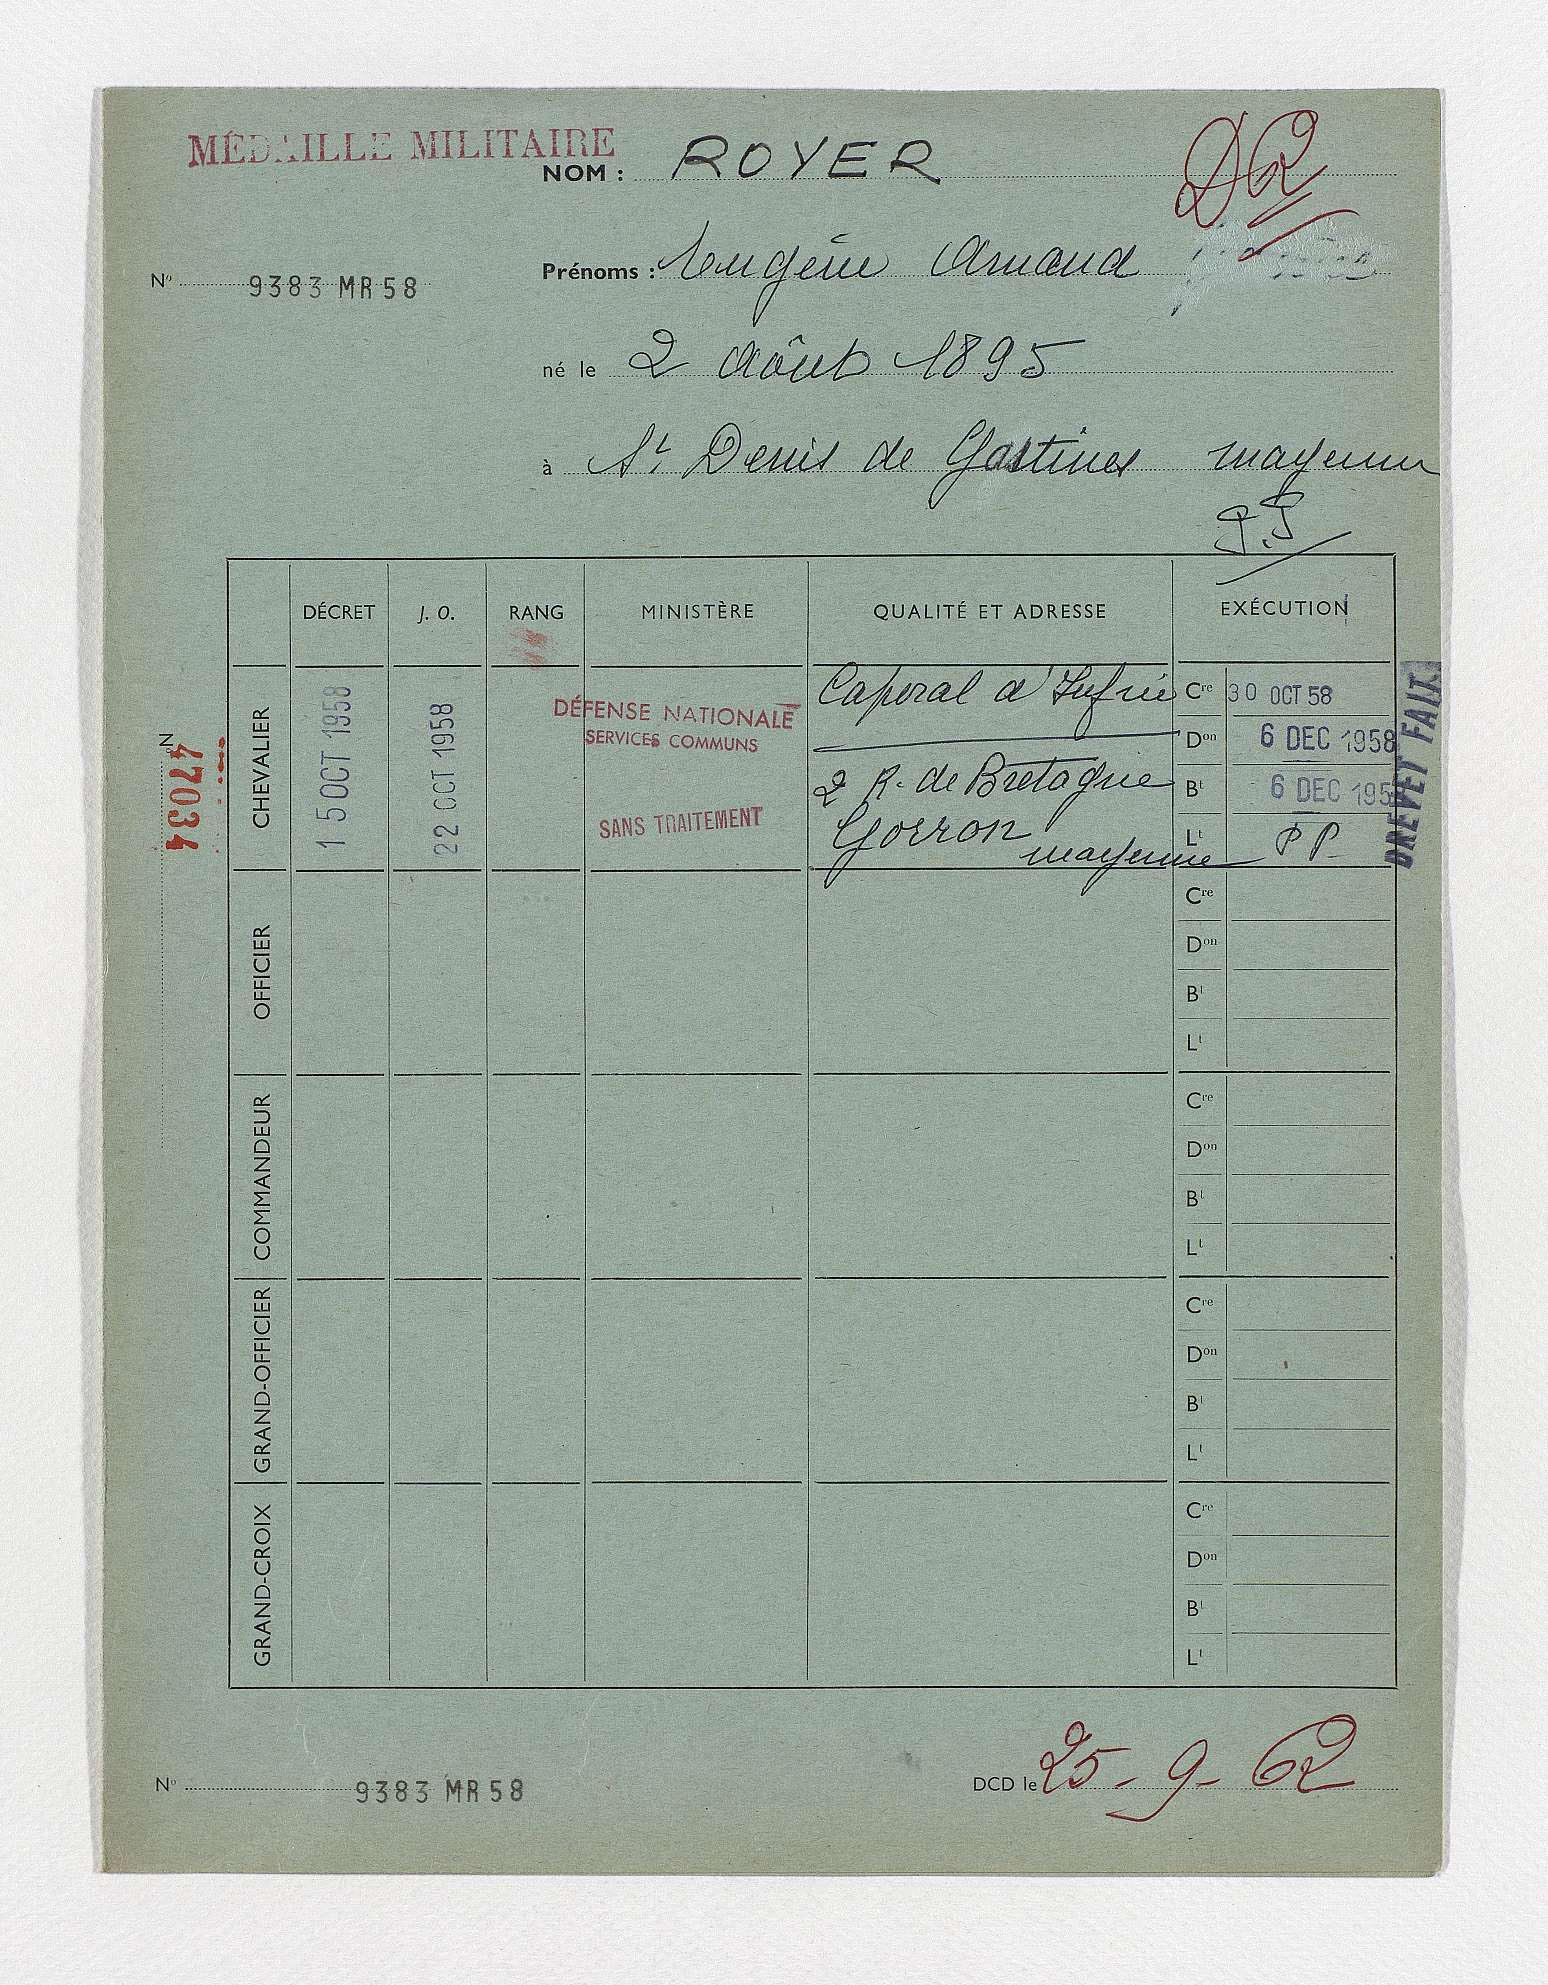 MÉDAILLE MILITAIRE
NOM : ROYER
DR
Nº 9383 MR 58
Prénoms : Eugène Armand
né le 2 Août 1895
à St Denis de Gastines Mayenne
P.P
DÉCRET J. O. RANG MINISTÈRE QUALITÉ ET ADRESSE EXÉCUTION
Nº 47034
CHEVALIER
15 OCT 1958
22 OCT 1958
DÉFENSE NATIONALE
SERVICES COMMUNS
SANS TRAITEMENT
Caporal d'Infrie
2 R. de Bretagne
Gorron
Mayenne
Cre 30 OCT 58
Don 6 DEC 1958
Bt 6 DEC 195
Lt P P
BREVET FAIT
OFFICIER
Cre
Don
Bt
Lt
COMMANDEUR
Cre
Don
Bt
Lt
GRAND-OFFICIER
Cre
Don
Bt
Lt
GRAND-CROIX
Cre
Don
Bt
Lt
Nº 9383 MR 58
DCD le 25-9-62